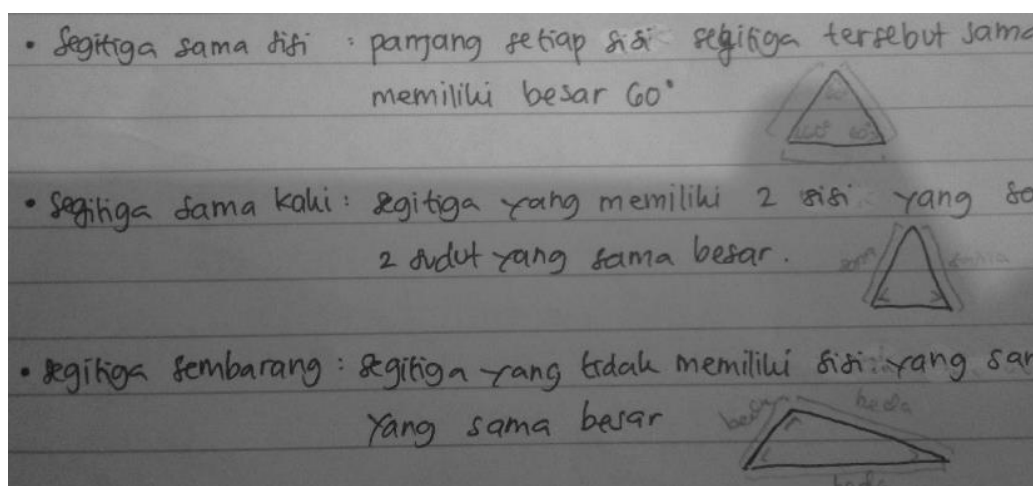 • Segitiga sama sisi : panjang setiap sisi segitiga tersebut sama
memiliki besar 60°
60° 60°
• Segitiga sama kaki : segitiga yang memiliki 2 sisi yang
2 sudut yang sama besar.
sama sama
• Segitiga sembarang : segitiga yang tidak memiliki sisi yang
yang sama besar
beda beda
beda